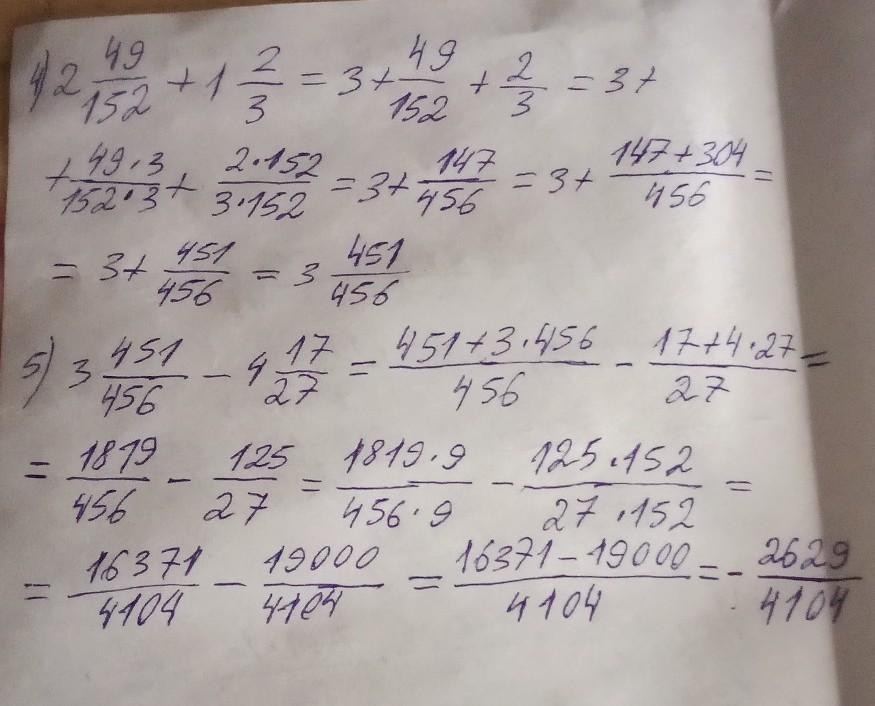 4) 2 49/152 + 1 2/3 = 3 + 49/152 + 2/3 = 3 +
+ 49·3/152·3 + 2·152/3·152 = 3 + 147/456 = 3 + 147+304/456 =
= 3 + 451/456 = 3 451/456
5) 3 451/456 - 4 17/27 = 451+3·456/456 - 17+4·27/27 =
= 1819/456 - 125/27 = 1819·9/456·9 - 125·152/27·152 =
= 16371/4104 - 19000/4104 = 16371-19000/4104 = - 2629/4104